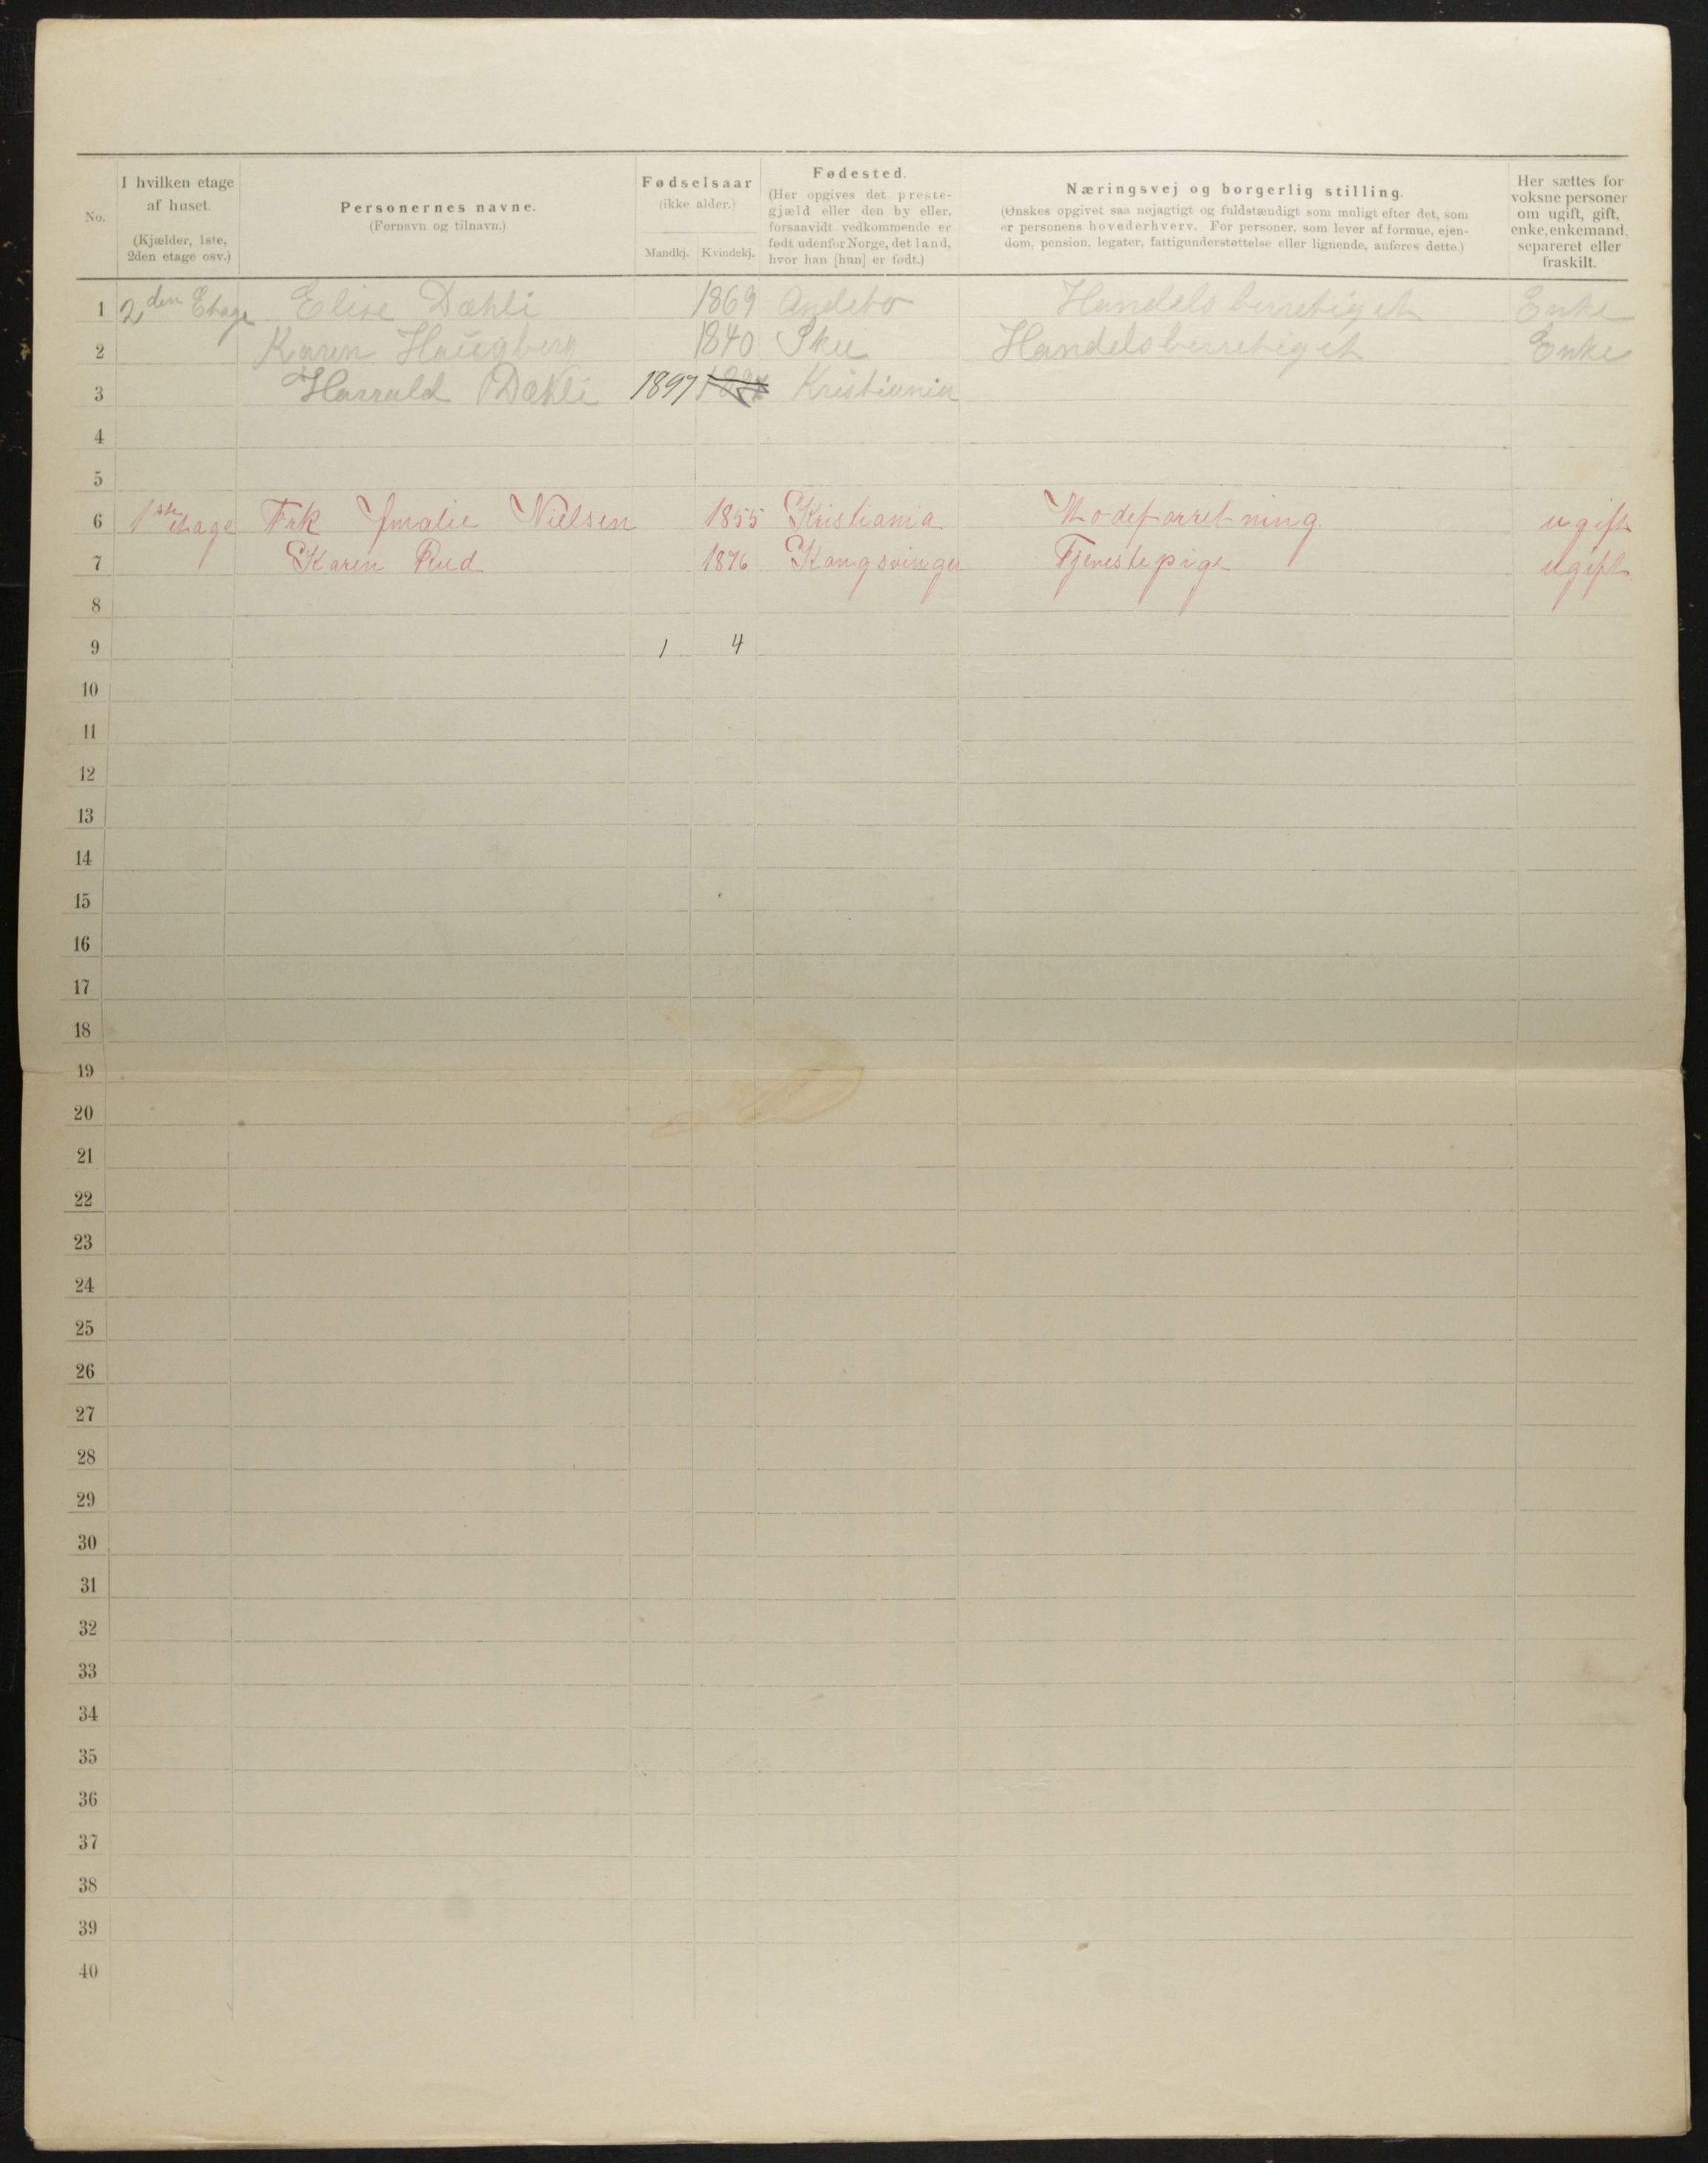 No.
I hvilken etage af huset.
(Kjælder, 1ste, 2den etage osv.)
Personernes navne.
(Fornavn og tilnavn.)
Fødselsaar
(ikke alder.)
Mandkj. Kvindekj.
Fødested.
(Her opgives det preste-
gjæld eller den by eller,
forsaavidt vedkommende er
født udenfor Norge, det land,
hvor han [hun] er født.)
Næringsvej og borgerlig stilling.
(Ønskes opgivet saa nøjagtigt og fuldstændigt som muligt efter det, som
er personens hovederhverv. For personer, som lever af formue, ejen-
dom, pension, legater, fattigunderstøttelse eller lignende, anføres dette.)
Her sættes for
voksne personer
om ugift, gift,
enke, enkemand,
separeret eller
fraskilt.
1 2den Etage Elise Dæhli 1869 Andebo Handelsberretiget Enke
2 Karen Haugberg 1840 Skie Handelsberretiget Enke
3 Harrald Dæhli 1897 Kristiania
4
5
6 1ste etage Frk Amalie Nielsen 1855 Kristiania Modeforretning ugift
7 Karen Rud 1876 Kongsvinger Tjenestepige ugift
8
9 1 4
10
11
12
13
14
15
16
17
18
19
20
21
22
23
24
25
26
27
28
29
30
31
32
33
34
35
36
37
38
39
40